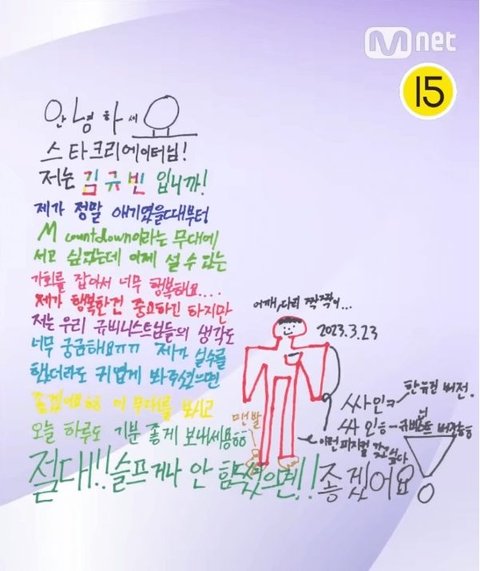 Mnet
15
안녕하세요
스타크리에이터님!
저는 김규빈 입니까!
제가 정말 애기였을때부터
M countdown이라는 무대에
서고 싶었는데 이제 설 수 있는
기회를 잡아서 너무 행복해요....
제가 행복한건 중요하긴 하지만
저는 우리 규비니스트님들의 생각도
너무 궁금해요ㅠㅠ 제가 실수를
했더라도 귀엽게 봐주셨으면
좋겠어요ㅎㅎ 이 무대를 보시고
오늘 하루도 기분 좋게 보내세요ㅎㅎ
절대!! 슬프거나 안 힘드셨으면!! 좋겠어요!
어깨, 다리 짝짝이...
2023.3.23
맨발
이런 피지컬 갖고싶다
싸인ㅋ 한유진 버전.
싸인ㅎ